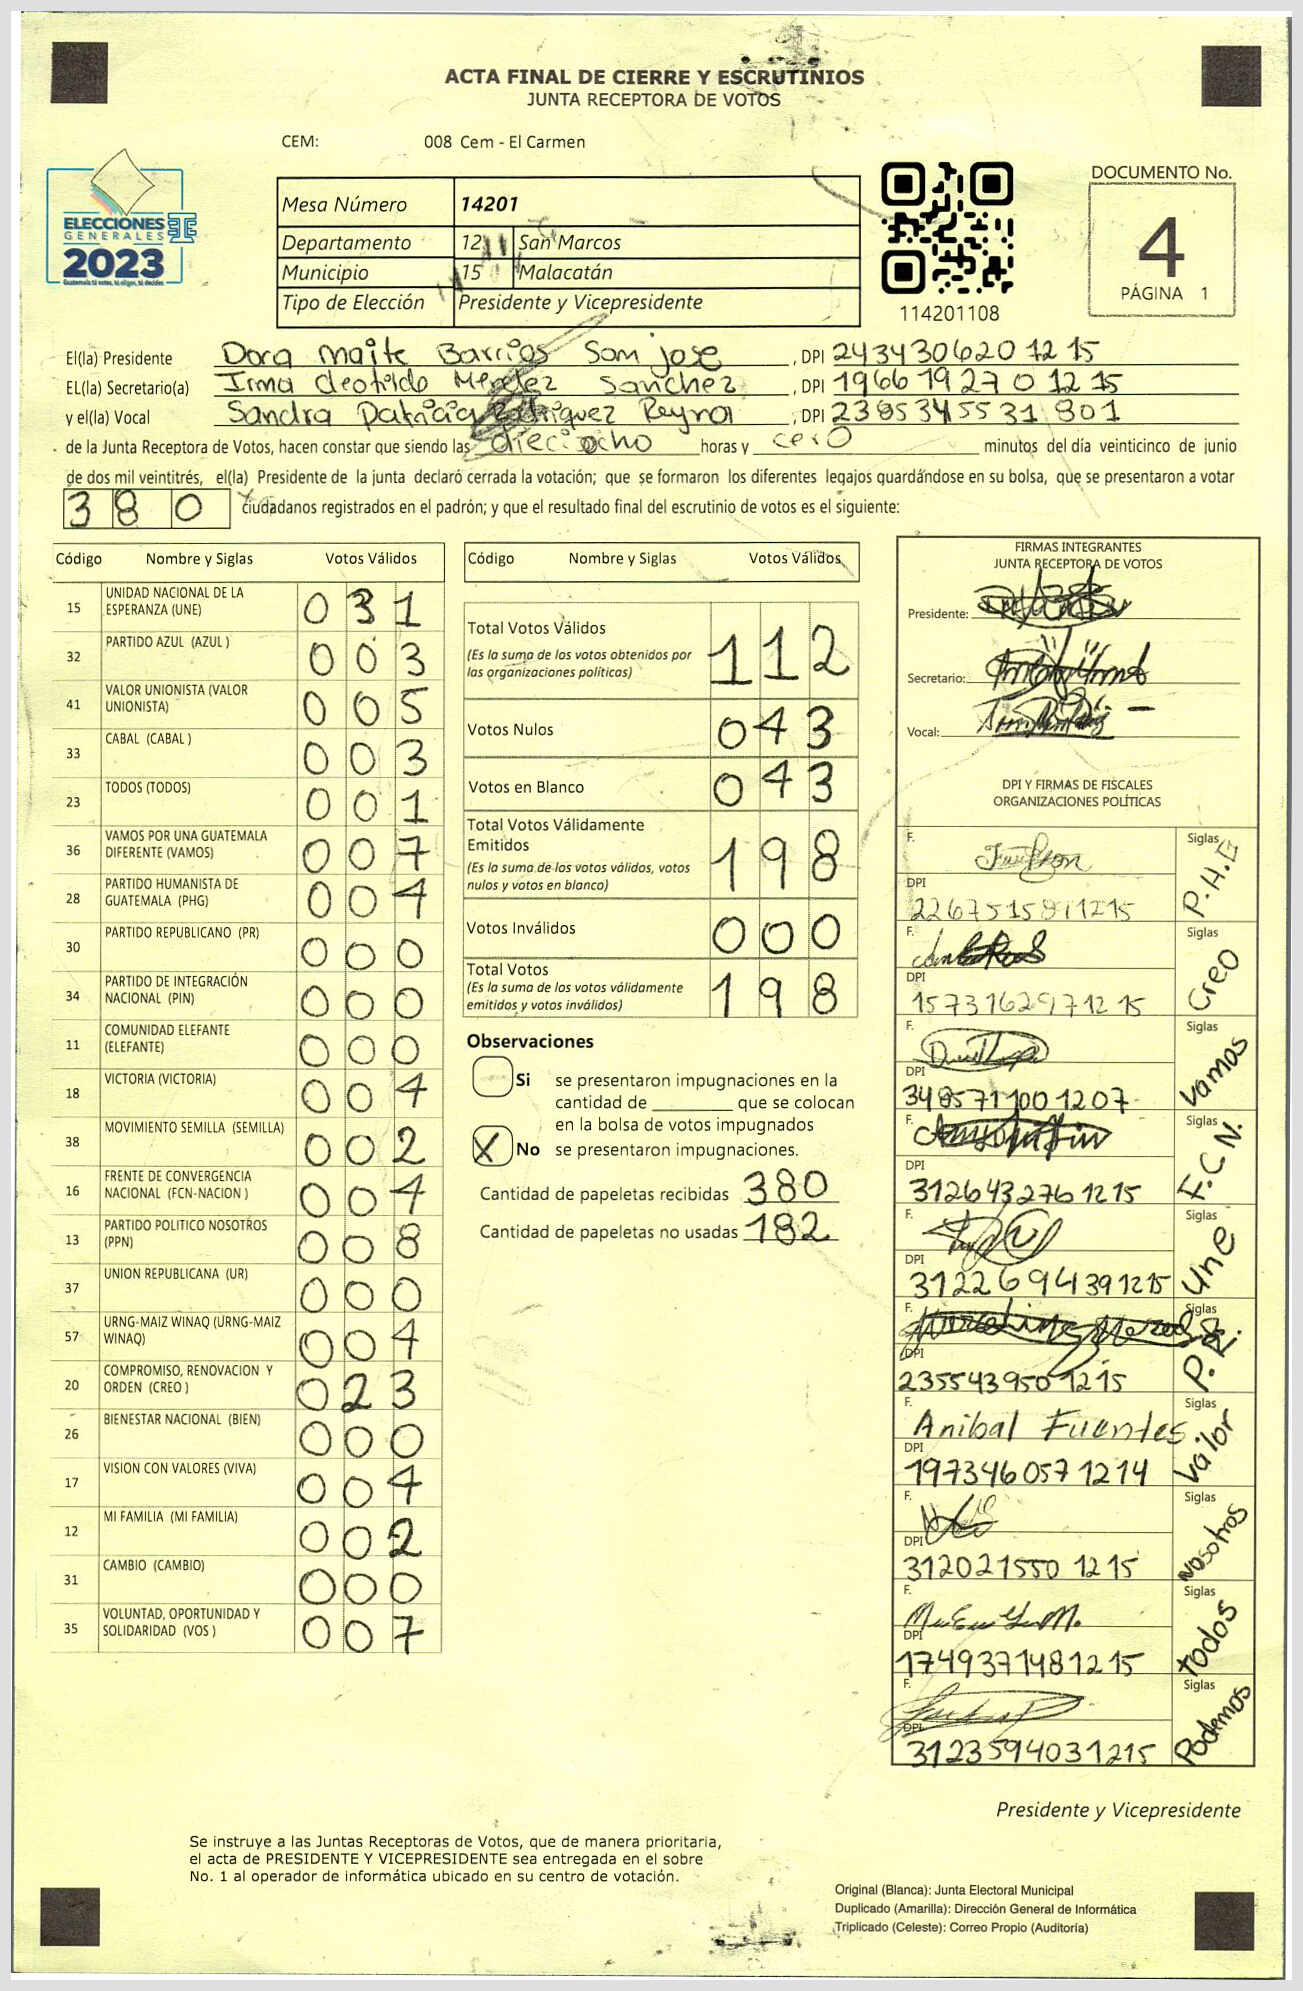 ACTA FINAL DE CIERRE Y ESCRUTINIOS
JUNTA RECEPTORA DE VOTOS
CEM: 008 Cem - El Carmen
ELECCIONES
GENERALES
2023
Guatemala tú votas, tú eliges, tú decides
Mesa Número 14201
Departamento 12 San Marcos
Municipio 15 Malacatán
Tipo de Elección Presidente y Vicepresidente
114201108
DOCUMENTO No.
4
PÁGINA 1
El(la) Presidente Dora Maite Barrios San jose, DPI 2434306201215
EL(la) Secretario(a) Irma Cleotilde Mendez Sanchez, DPI 1966192701215
y el(la) Vocal Sandra Patricia Rodriguez Reyna, DPI 2385345531801
de la Junta Receptora de Votos, hacen constar que siendo las dieciocho horas y cero minutos del día veinticinco de junio
de dos mil veintitrés, el(la) Presidente de la junta declaró cerrada la votación; que se formaron los diferentes legajos guardándose en su bolsa, que se presentaron a votar
380 ciudadanos registrados en el padrón; y que el resultado final del escrutinio de votos es el siguiente:
Código Nombre y Siglas Votos Válidos
15 UNIDAD NACIONAL DE LA ESPERANZA (UNE) 031
32 PARTIDO AZUL (AZUL ) 003
41 VALOR UNIONISTA (VALOR UNIONISTA) 005
33 CABAL (CABAL ) 003
23 TODOS (TODOS) 001
36 VAMOS POR UNA GUATEMALA DIFERENTE (VAMOS) 007
28 PARTIDO HUMANISTA DE GUATEMALA (PHG) 004
30 PARTIDO REPUBLICANO (PR) 000
34 PARTIDO DE INTEGRACIÓN NACIONAL (PIN) 000
11 COMUNIDAD ELEFANTE (ELEFANTE) 000
18 VICTORIA (VICTORIA) 004
38 MOVIMIENTO SEMILLA (SEMILLA) 002
16 FRENTE DE CONVERGENCIA NACIONAL (FCN-NACION ) 004
13 PARTIDO POLITICO NOSOTROS (PPN) 008
37 UNION REPUBLICANA (UR) 000
57 URNG-MAIZ WINAQ (URNG-MAIZ WINAQ) 004
20 COMPROMISO, RENOVACION Y ORDEN (CREO ) 023
26 BIENESTAR NACIONAL (BIEN) 000
17 VISION CON VALORES (VIVA) 004
12 MI FAMILIA (MI FAMILIA) 002
31 CAMBIO (CAMBIO) 000
35 VOLUNTAD, OPORTUNIDAD Y SOLIDARIDAD (VOS ) 007
Código Nombre y Siglas Votos Válidos
Total Votos Válidos 112
(Es la suma de los votos obtenidos por
las organizaciones políticas)
Votos Nulos 043
Votos en Blanco 043
Total Votos Válidamente
Emitidos 198
(Es la suma de los votos válidos, votos
nulos y votos en blanco)
Votos Inválidos 000
Total Votos 198
(Es la suma de los votos válidamente
emitidos y votos inválidos)
Observaciones
Si se presentaron impugnaciones en la
cantidad de ________ que se colocan
en la bolsa de votos impugnados
X No se presentaron impugnaciones.
Cantidad de papeletas recibidas 380
Cantidad de papeletas no usadas 182
FIRMAS INTEGRANTES
JUNTA RECEPTORA DE VOTOS
Presidente:
Secretario:
Vocal:
DPI Y FIRMAS DE FISCALES
ORGANIZACIONES POLÍTICAS
F. Siglas P.H.G
DPI
F. Siglas Creo
DPI 1573162971215
F. Siglas Vamos
DPI 3485711001207
F. Siglas F.C.N.
DPI 3126432761215
F. Siglas Une
DPI 3122694391215
F. Siglas
DPI 2355439501215
F. Anibal Fuentes Siglas Valor
DPI 1973460571214
F. Siglas Nosotros
DPI 3120215501215
F. Siglas todos
DPI 1749371481215
F. Siglas Podemos
DPI 3123594031215
Presidente y Vicepresidente
Se instruye a las Juntas Receptoras de Votos, que de manera prioritaria,
el acta de PRESIDENTE Y VICEPRESIDENTE sea entregada en el sobre
No. 1 al operador de informática ubicado en su centro de votación.
Original (Blanca): Junta Electoral Municipal
Duplicado (Amarilla): Dirección General de Informática
Triplicado (Celeste): Correo Propio (Auditoría)